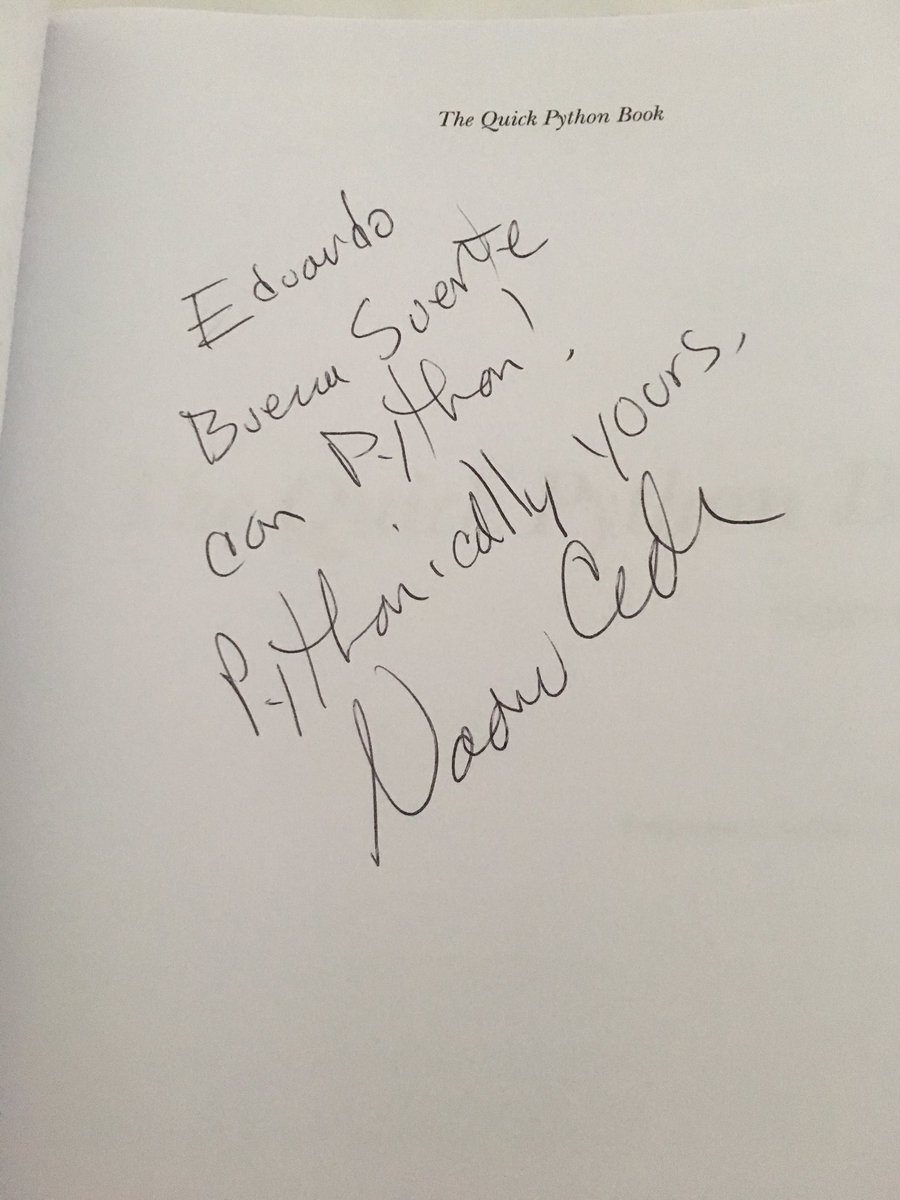 The Quick Python Book
Eduardo
Buena Suerte
con Python!
Pythonically yours,
Naomi Ceder